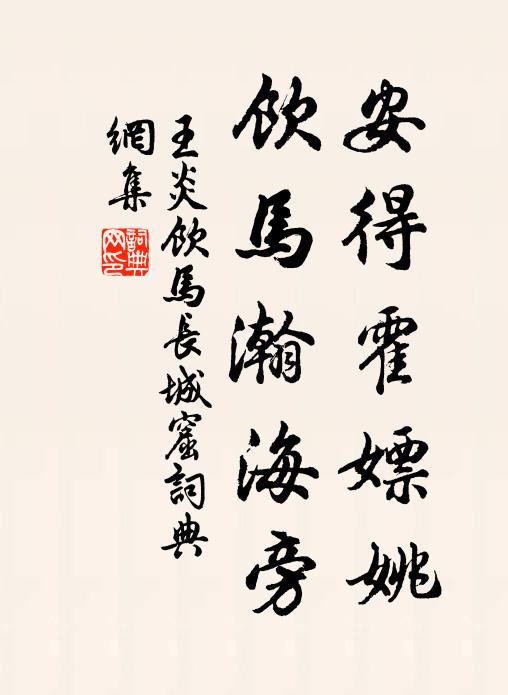 安得霍嫖姚
飲馬瀚海旁
王炎飲馬長城窟詞典
網集
詞典
网印